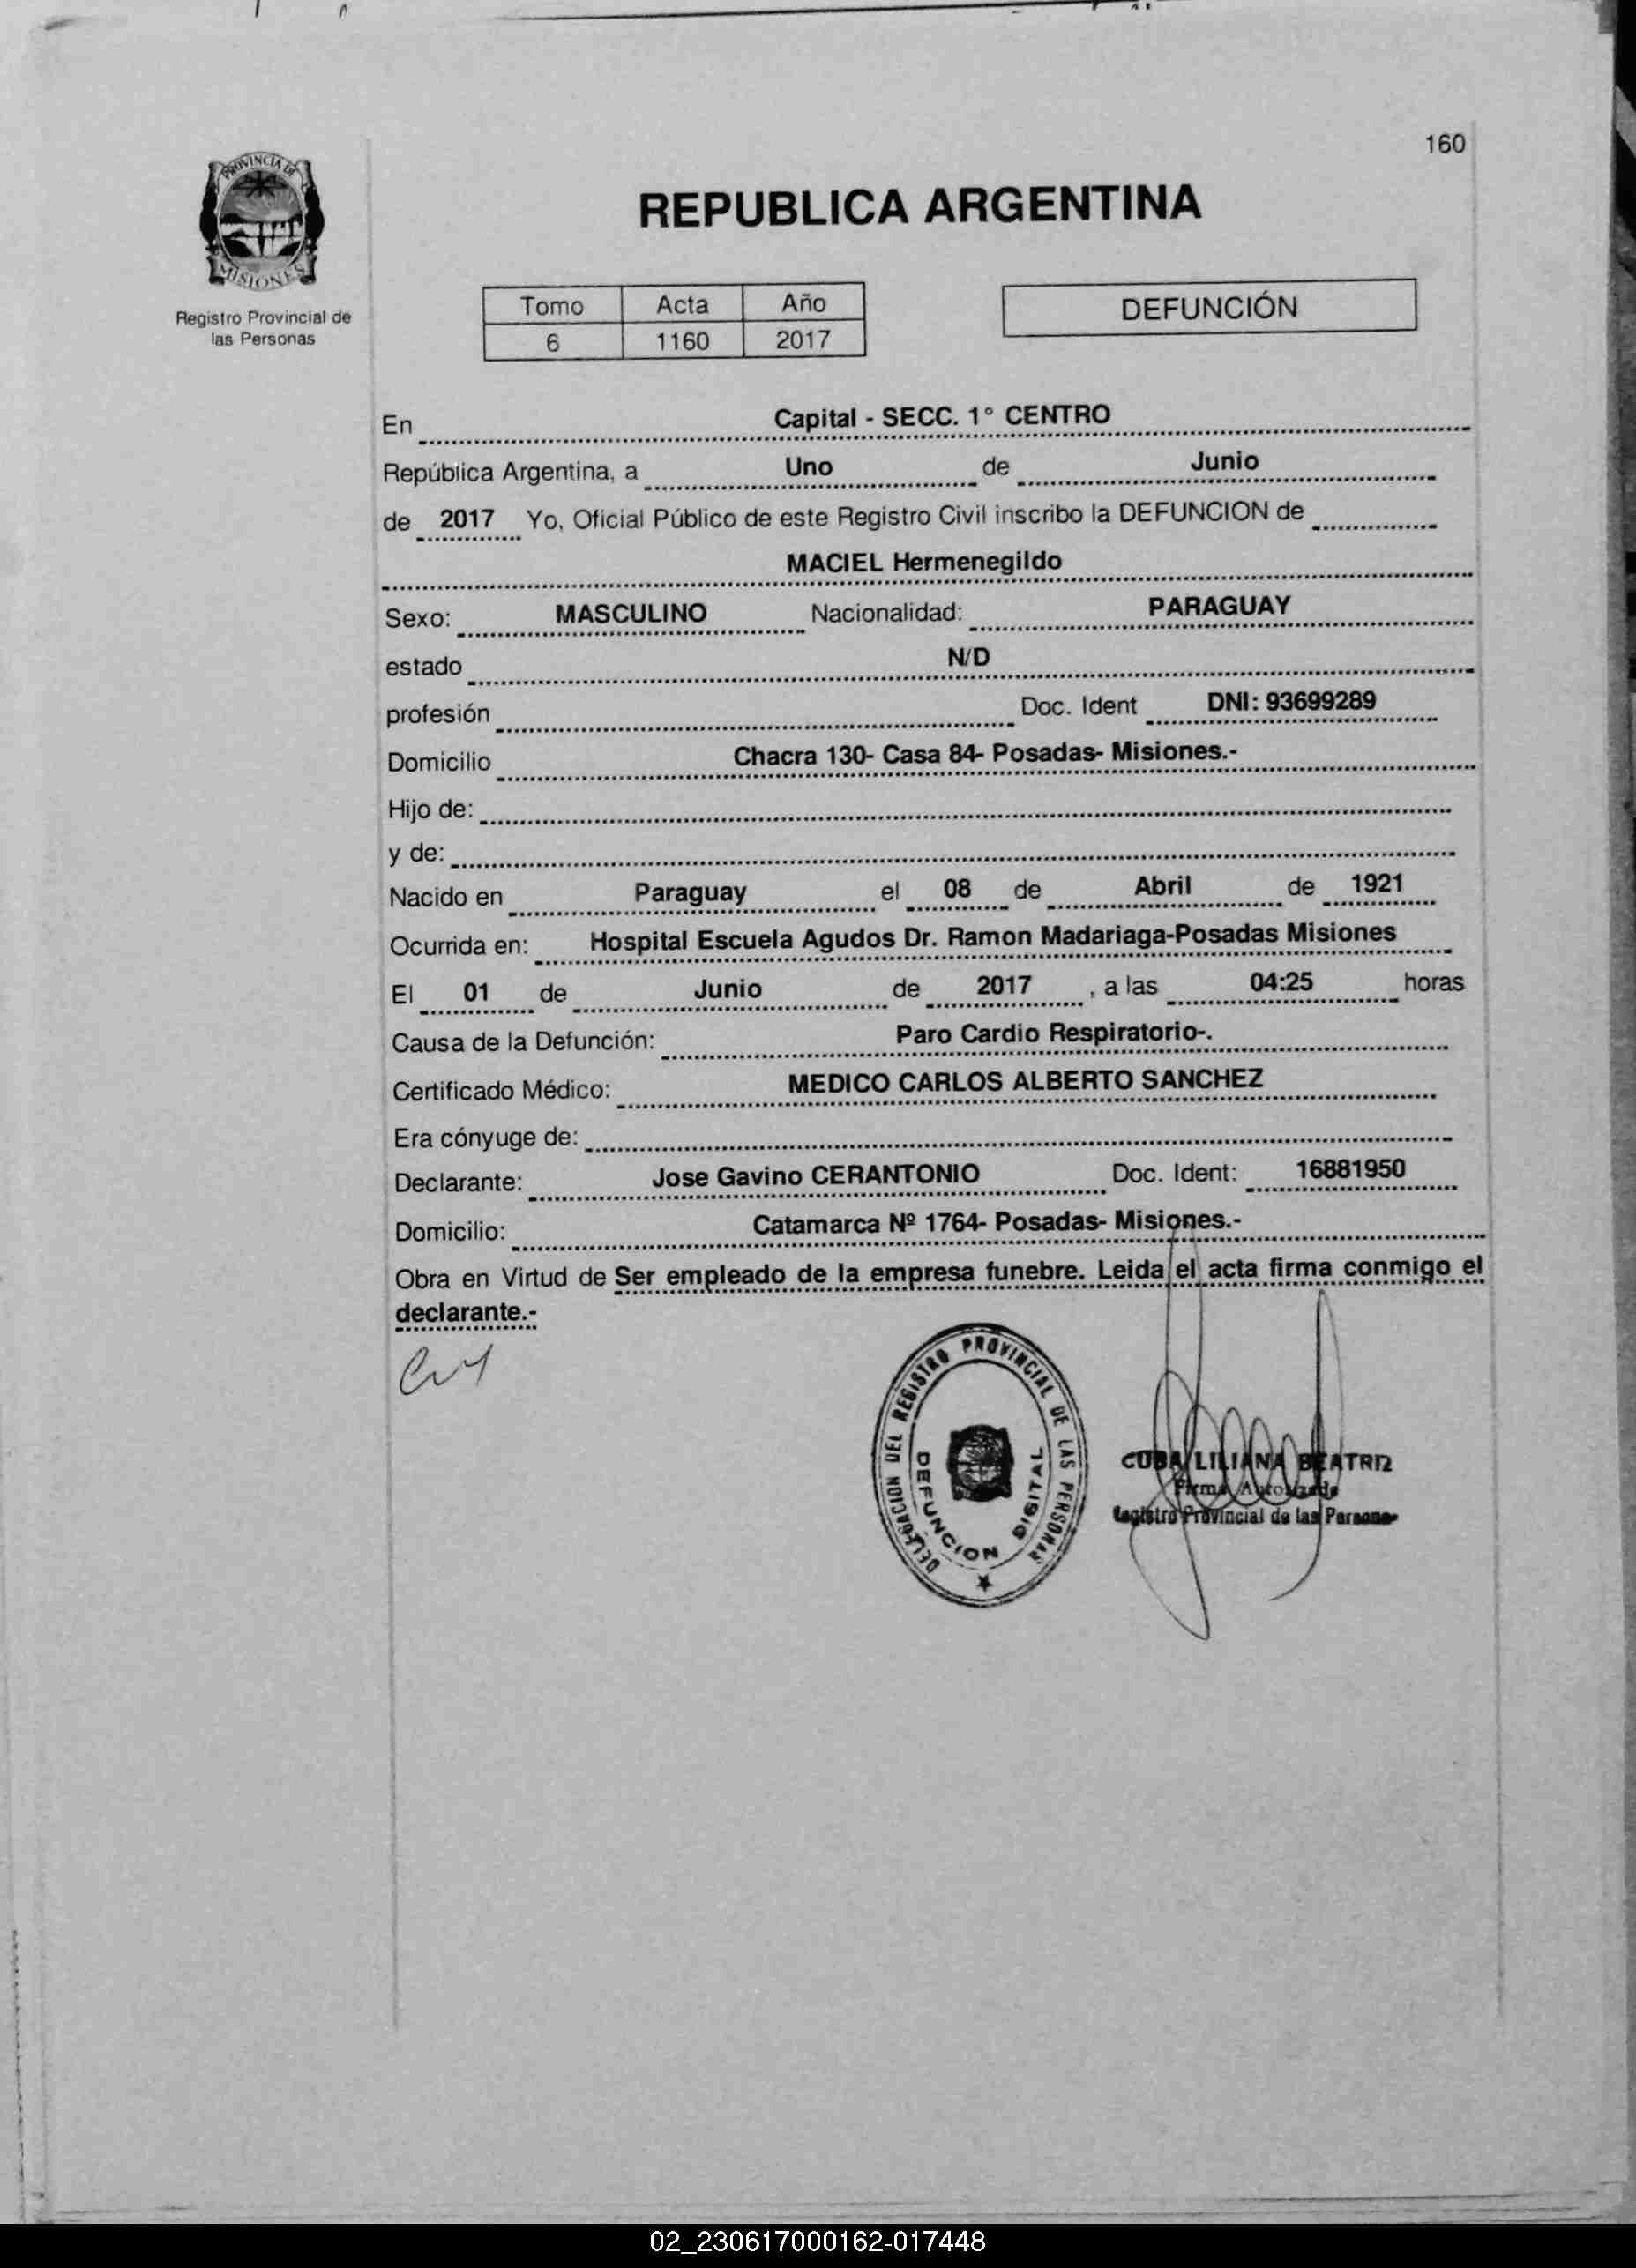 160
PROVINCIA DE
MISIONES
Registro Provincial de
las Personas
REPUBLICA ARGENTINA
Tomo Acta Año
6 1160 2017
DEFUNCIÓN
En Capital - SECC. 1° CENTRO
República Argentina, a Uno de Junio
de 2017 Yo, Oficial Público de este Registro Civil inscribo la DEFUNCION de
MACIEL Hermenegildo
Sexo: MASCULINO Nacionalidad: PARAGUAY
estado N/D
profesión Doc. Ident DNI: 93699289
Domicilio Chacra 130- Casa 84- Posadas- Misiones.-
Hijo de:
y de:
Nacido en Paraguay el 08 de Abril de 1921
Ocurrida en: Hospital Escuela Agudos Dr. Ramon Madariaga-Posadas Misiones
El 01 de Junio de 2017 , a las 04:25 horas
Causa de la Defunción: Paro Cardio Respiratorio-.
Certificado Médico: MEDICO CARLOS ALBERTO SANCHEZ
Era cónyuge de:
Declarante: Jose Gavino CERANTONIO Doc. Ident: 16881950
Domicilio: Catamarca Nº 1764- Posadas- Misiones.-
Obra en Virtud de Ser empleado de la empresa funebre. Leida el acta firma conmigo el
declarante.-
DELEGACION DEL REGISTRO PROVINCIAL DE LAS PERSONAS
DEFUNCION DIGITAL
CUBA LILIANA BEATRIZ
Firma Autorizada
Registro Provincial de las Personas
02_230617000162-017448